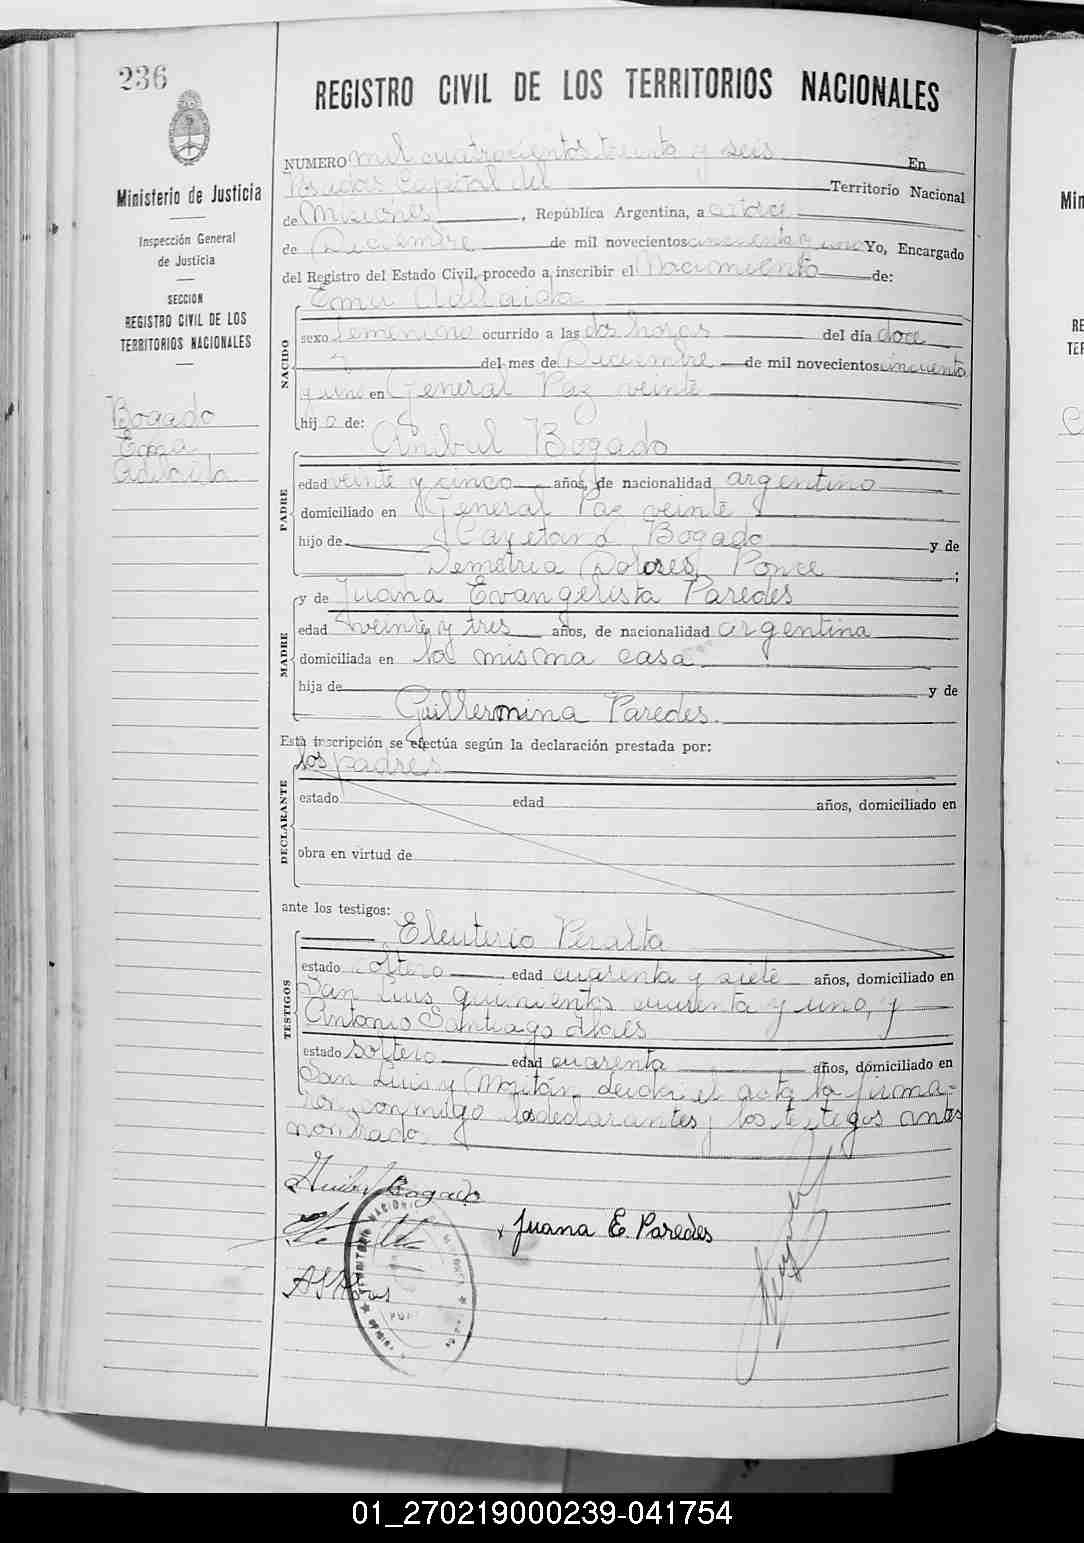 236
REGISTRO CIVIL DE LOS TERRITORIOS NACIONALES
Ministerio de Justicia
Inspección General
de Justicia
SECCION
REGISTRO CIVIL DE LOS
TERRITORIOS NACIONALES
Bogado
Ema
Adelaida
NUMERO mil cuatrocientos treinta y seis En
Posadas Capital del Territorio Nacional
de Misiones, República Argentina, a catorce
de Diciembre de mil novecientos cincuenta y uno Yo, Encargado
del Registro del Estado Civil, procedo a inscribir el Nacimiento de:
Ema Adelaida
NACIDO
sexo femenino ocurrido a las dos horas del día doce
del mes de Diciembre de mil novecientos cincuenta
y uno en General Paz veinte
hij a de:
Anibal Bogado
PADRE
edad veinte y cinco años, de nacionalidad argentino
domiciliado en General Paz veinte
hijo de Cayetano Bogado y de
Demetria Dolores Ponce ;
y de Juana Evangelista Paredes
MADRE
edad veinte y tres años, de nacionalidad argentina
domiciliada en la misma casa
hija de y de
Guillermina Paredes.
Esta inscripción se efectúa según la declaración prestada por:
los padres
DECLARANTE
estado edad años, domiciliado en
obra en virtud de
ante los testigos:
Eleuterio Peralta
TESTIGOS
estado soltero edad cuarenta y siete años, domiciliado en
San Luis quinientos cuarenta y uno, y
Antonio Santiago Flores
estado soltero edad cuarenta años, domiciliado en
San Luis y Leida el acta la firma-
ron conmigo los declarantes y los testigos antes
nombrado.
Bogado
Juana E. Paredes
Min
RE
TER
01_270219000239-041754